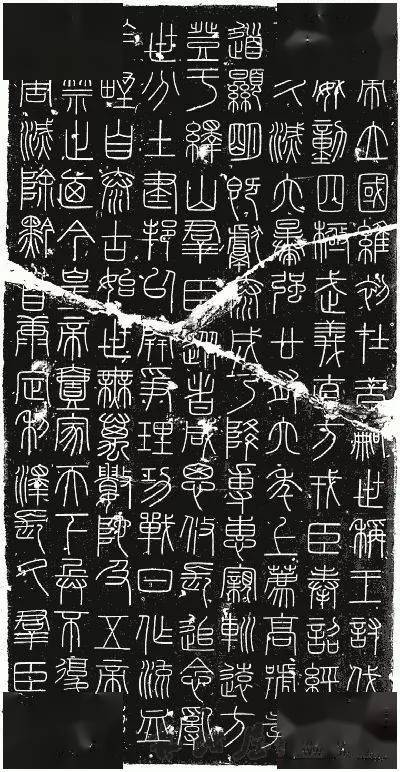 帝立國維初在昔嗣世稱王討伐
威動四極武義直方戎臣奉詔經
久滅六暴強廿有六年上薦高號
道顯明既獻泰成乃降專惠親巡遠方
登于繹山群臣從者咸思攸長追念亂
世分土建邦以開爭理功戰日作流血
野自泰古始世無萬數陀及五帝
禁止迺今皇帝壹家天下兵不復
害滅除黔首康定利澤長久群臣